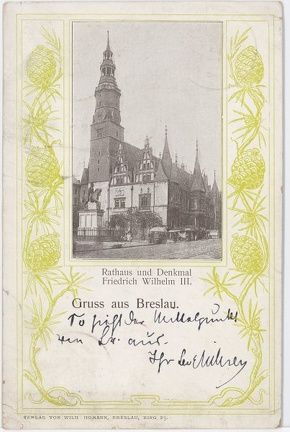 Rathaus und Denkmal
Friedrich Wilhelm III.
Gruss aus Breslau.
So sieht der Mittelpunkt
von Br. aus.
Ihr
VERLAG VON WILH. HOMANN, BRESLAU, RING 25.